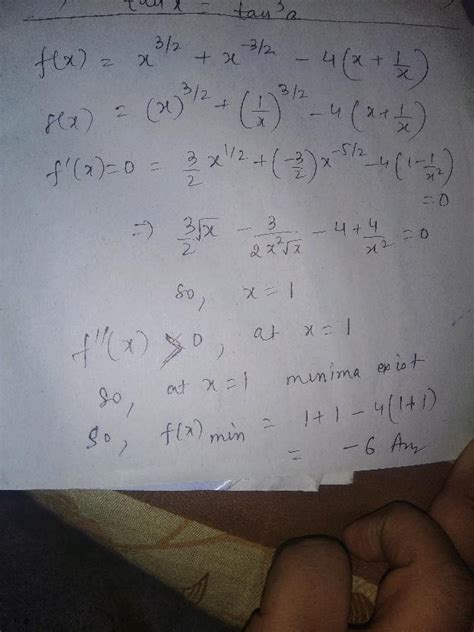 = tan³a
f(x) = x^{3/2} + x^{-3/2} - 4(x + 1/x)
f(x) = (x)^{3/2} + (1/x)^{3/2} - 4(x + 1/x)
f'(x)=0 = 3/2 x^{1/2} + (-3/2) x^{-5/2} - 4(1 - 1/x²)
= 0
⇒ 3/2 √x - 3/(2x²√x) - 4 + 4/x² = 0
so, x = 1
f''(x) > 0, at x = 1
so, at x = 1 minima exist
so, f(x) min = 1+1-4(1+1)
= -6 Ans